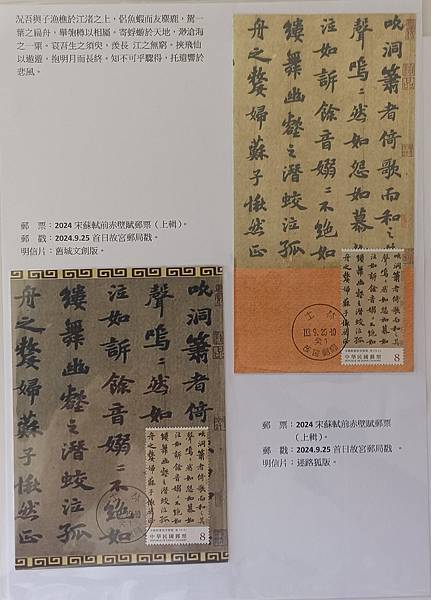 况吾與子漁樵於江渚之上，侶魚蝦而友麋鹿，駕一
葉之扁舟，舉匏樽以相屬。寄蜉蝣於天地，渺滄海
之一粟。哀吾生之須臾，羨長 江之無窮。挾飛仙
以遨遊，抱明月而長終。知不可乎驟得，托遺響於
悲風。
吹洞簫者倚歌而和之其
聲嗚嗚然如怨如慕如
泣如訴餘音嫋嫋不絕如
縷舞幽壑之潛蛟泣孤
舟之嫠婦蘇子愀然正
中華民國郵票
8
郵　票：2024 宋蘇軾前赤壁賦郵票（上輯）。
郵　戳：2024.9.25 首日故宮郵局戳。
明信片：舊城文創版。
吹洞簫者倚歌
聲嗚嗚然如怨
泣如訴餘音嫋嫋不絕如
縷舞幽壑之潛蛟泣孤
舟之嫠婦蘇子愀然正
中華民國郵票
8
郵　票：2024 宋蘇軾前赤壁賦郵票
（上輯）。
郵　戳：2024.9.25 首日故宮郵局戳 。
明信片：迷路狐版。